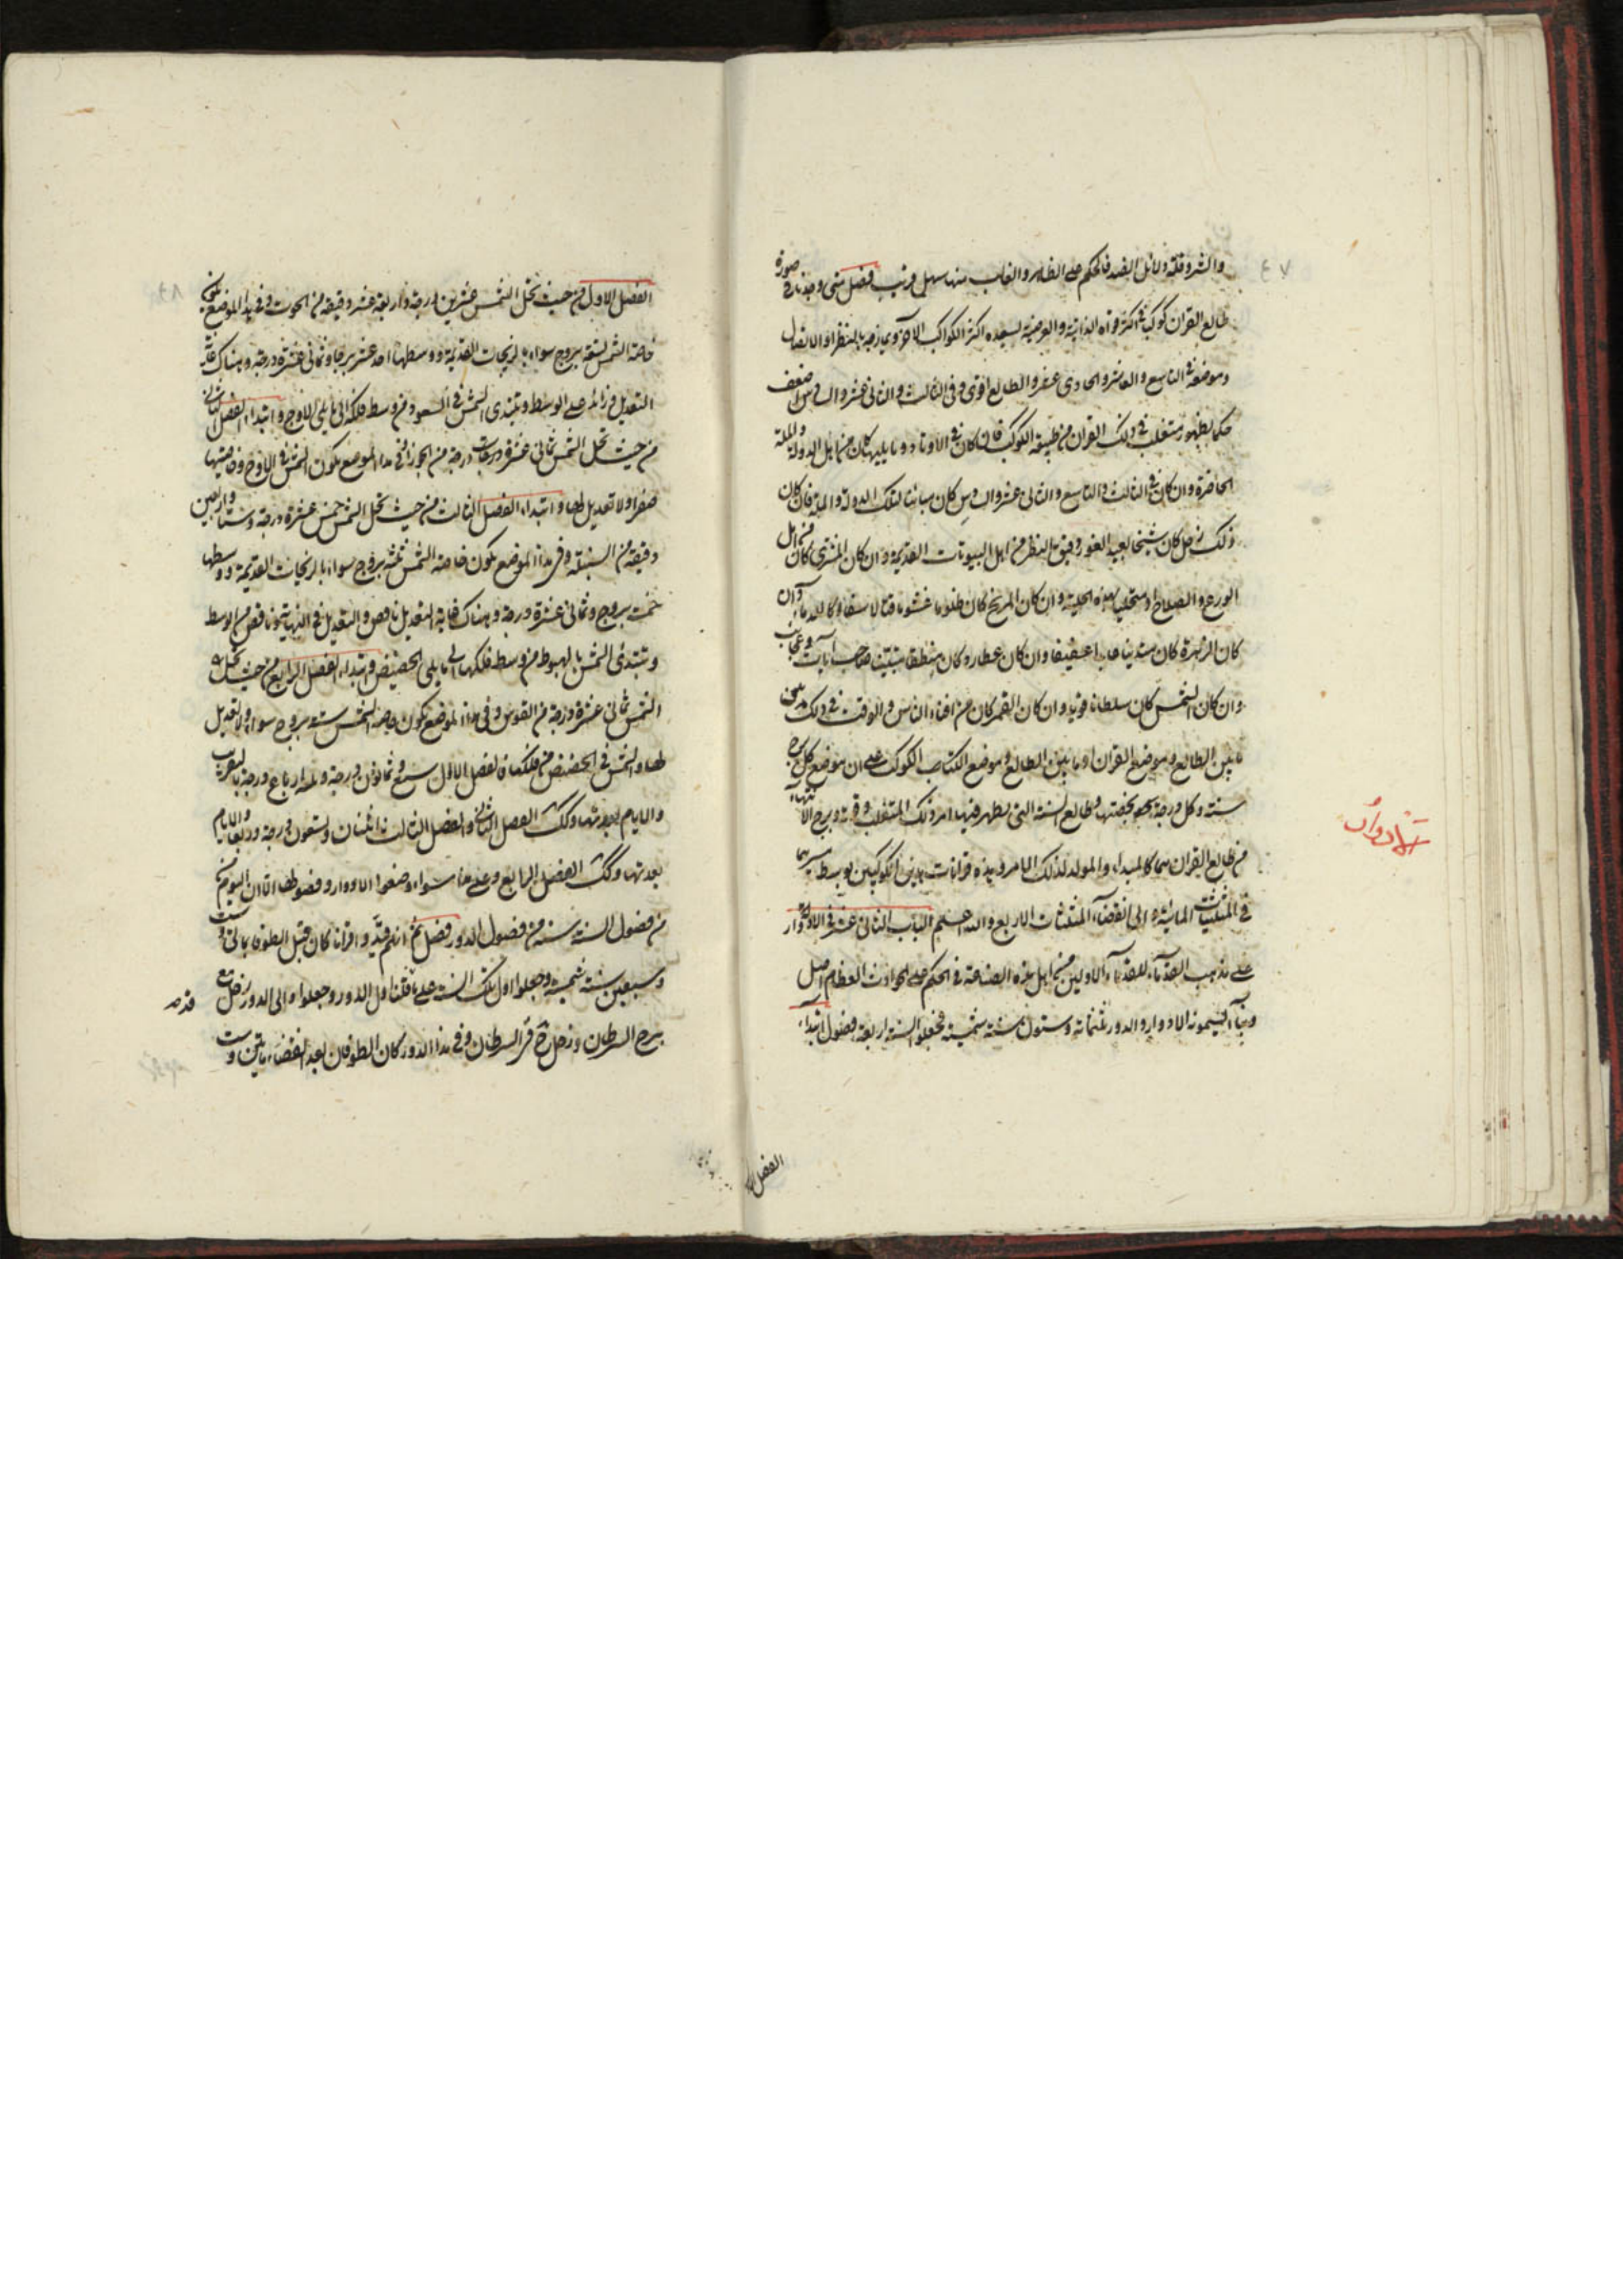 ٤٧
والشر وقلته ودلائل الضد فالحكم على الظاهر والغالب منها سهل قريب فصل متى وجدنا في صورة
طالع القران كوكبا في اكثر قواه الذاتية والعرضية يسعده اكثر الكواكب الاخر ويمازجه بالنظر او الاتصال
وموضعه في التاسع والعاشر والحادى عشر والطالع اقوى وفى الثالث والثانى عشر والسادس اضعف
حكما بظهور متغلب في ذلك القران من طبيعة الكوكب فان كان في الاوتاد وما يليها كان من اهل الدولة والملة
الحاضرة وان كان في الثالث والتاسع والثانى عشر والسادس كان مباينا لتلك الدولة والملة فان كان
ذلك زحل كان شيخا بعيد الغور دقيق النظر من اهل البيوتات القديمة وان كان المشترى كان من اهل
الورع والصلاح او متحليا بهذه الحلية وان كان المريخ كان ظلوما غشوما قتالا سفاكا للدماء وان
كان الزهرة كان متدينا عفيفا وان كان عطارد كان منطقيا صاحب آيات وعجائب
وان كان الشمس كان سلطانا قويا وان كان القمر كان من افناء الناس والوقت في ذلك من
ما بين الطالع وموضع القران او ما بين الطالع وموضع الكوكب على ان موضع كل برج
سنة وكل درجة بحصتها وطالع السنة التى يظهر فيها امر ذلك المتغلب وبرج الانتهاء
من طالع القران هما كالمبداء والمولد لذلك الامر وهذه قرانات هذين الكوكبين بوسط سيرهما
في المثلثات المائية الى انقضاء المثلثات الاربع والله اعلم الباب الثانى عشر في الادوار
على مذهب القدماء للقدماء الاولين من اهل هذه الصناعة في الحكم على الحوادث العظام اصل
وبناء يسمونه الادوار والدور ثلثمائة وستون سنة شمسية فجعلوا السنة اربعة فصول ابتداء
الادوار
الفصل
٤٨
الفصل الاول من حيث تحل الشمس عشرين درجة واربعة عشر دقيقة من الحوت وفى هذا الموضع يكون
خاصة الشمس تسعة بروج سواء بالزيجات القديمة ووسطها احد عشر برجا وثمانى عشرة درجة وهناك غاية
التعديل زائد على الوسط وتبتدى الشمس في الصعود من وسط فلكها الى ما يلى الاوج وابتداء الفصل الثانى
من حيث تحل الشمس ثمانى عشرة درجة من الجوزا في هذا الموضع يكون الشمس في الاوج وخاصتها
صفرا ولا تعديل لها وابتداء الفصل الثالث من حيث تحل الشمس خمس عشرة درجة وستا واربعين
دقيقة من السنبلة وفى هذا الموضع يكون خاصة الشمس ثلثة بروج سواء بالزيجات القديمة ووسطها
خمسة بروج وثمانى عشرة درجة وهناك غاية التعديل ناقص والتعديل في النهاية ناقص من الوسط
وتبتدى الشمس بالهبوط من وسط فلكها الى ما يلى الحضيض وابتداء الفصل الرابع من حيث تحل
الشمس ثمانى عشرة درجة من القوس وفى هذا الموضع يكون خاصة الشمس ستة بروج سواء ولا تعديل
لها والشمس في الحضيض من فلكها فالفصل الاول سبع وثمانون درجة وثلثة ارباع درجة بالتقريب
والايام بعدتها وكذلك الفصل الثانى والفصل الثالث اثنتان وتسعون درجة وربع والايام
بعدتها وكذلك الفصل الرابع وعلى هذا سواء وضعوا الادوار وفصولها الا ان اليوم
من فصول السنة سنة من فصول الدور فصل ثم انهم قيدوا قرانا كان قبل الطوفان بمائتى وست
وسبعين سنة شمسية وجعلوا اول تلك السنة على ما قلنا اول الدور وجعلوا والى الدور زحل مع
برج السرطان وزحل ثم السرطان وفى هذا الدور كان الطوفان بعد انقضاء مائتين وست